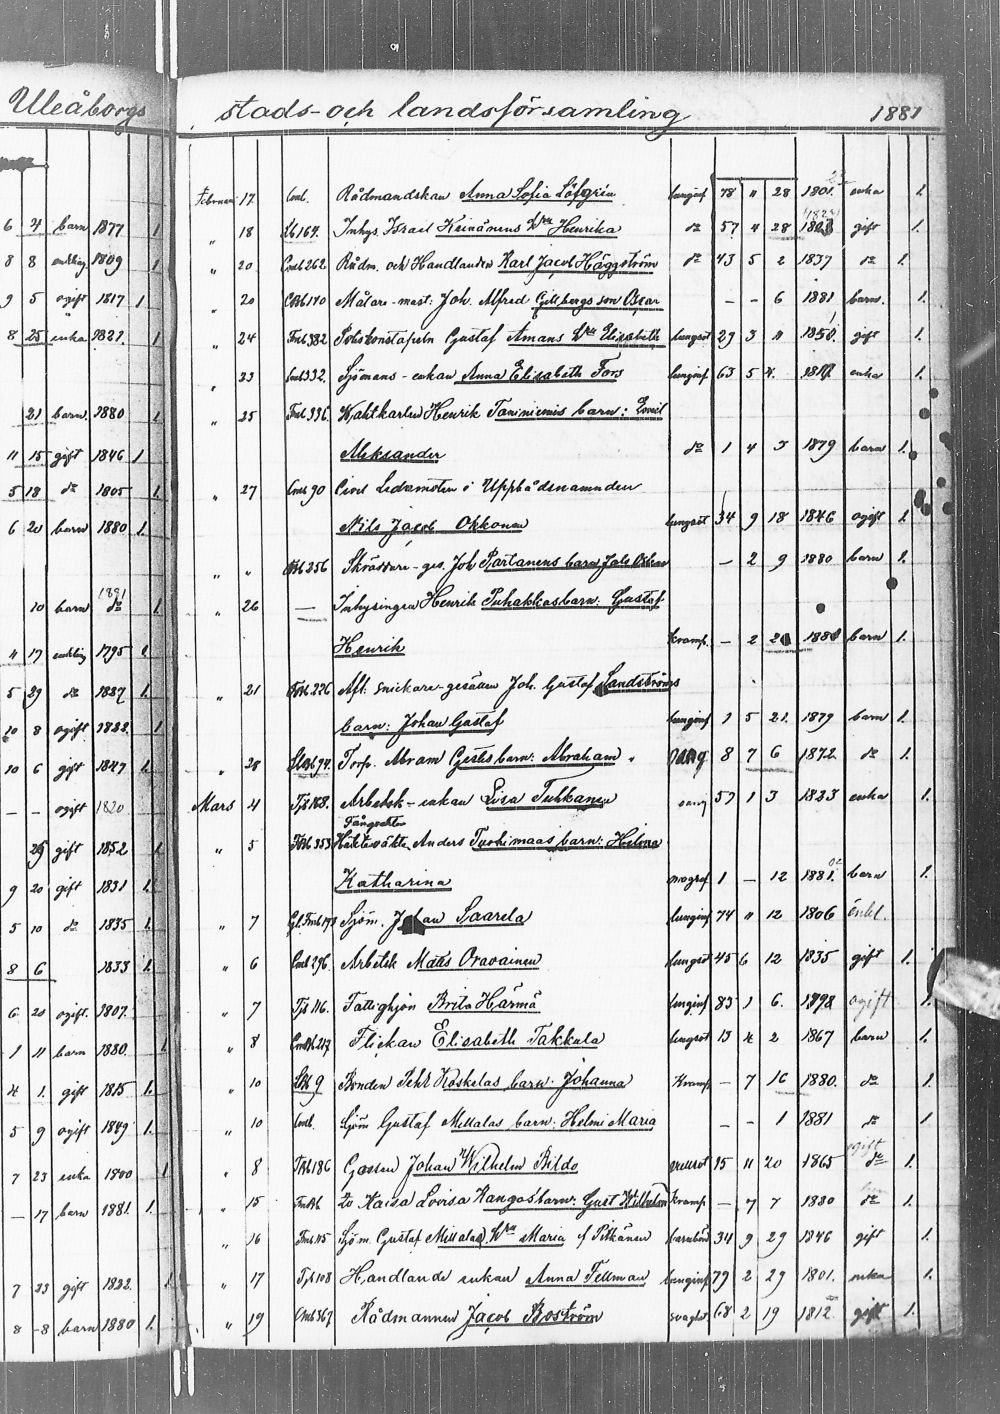 Uleåborgs stads- och landsförsamling 1881
6 4 barn 1877 1
8 8 enkling 1809 1
9 5 ogift 1817 1
8 25 enka 1821 1
21 barn 1880 1
11 15 gift 1846 1
5 18 do 1805 1.
6 20 barn 1880 1.
1881
10 barn do 1
4 17 enkling 1795 1
5 29 do 1827 1.
10 8 ogift 1822. 1
10 6 gift 1847 1.
- - ogift 1820
29 gift 1852 1
9 20 gift 1831 1.
5 10 do 1835 1.
8 6 1833 1.
6 20 ogift. 1807.
1 11 barn 1880. 1
4 1. gift 1815 1.
5 9 ogift 1849 1.
7 23 enka 1800 1
- 17 barn 1881. 1.
7 23 gift 1822. 1
8 -8 barn 1880 1.
Februari 17. Rådmanskan Anna Sofia Löfgrén lunginf 78 " 28 1801. enka 1.
" 18 Lb 164. Inhys. Israel Keinänens Hru Henrika do 57 4 28 gift 1.
" 20 Cmb 262 Rådm. och Handlanden Karl Jacob Häggström do 43 5 2 1837 do 1.
" 20 CBb 140 Målare-mäst: Joh. Alfred Gellbergs son Oscar - - 6 1881 barn. 1.
" 24 Tmb 382 Gustaf Amans Hru Elisabeth lungsot 29 3 " 1850. gift 1.
" 23 Cmb 332. Sjömans-enkan Anna Elisabeth Fors lunginf 63 5 4. enka 1.
" 25 Tmb 336. Wahtkarlen Henrik Taniniemis barn: Emil
Aleksander do 1 4 3 1879 barn 1.
" 27 Cmb 90 Civil Ledamoten i Uppbådsnämnden
Nils Jacob Okkonen lungsot 34 9 18 1846 ogift 1.
" " 256 Skräddare-ges. Joh Partanens barn Joh: Oskar - 2 9 1880 barn 1.
" 26 — Inhysingen Henrik Puhakkas barn: Gustaf
Henrik Kramp. - 2 1880 barn 1.
" 21 TBb 226 Afl. Snickare-gesällen Joh. Gustaf Sandströms
barn: Johan Gustaf lunginf 1 5 21. 1879 barn 1.
" 28 94. Torp. Abram Gests barn: Abraham 8 7 6 1872 do 1.
Mars 4 Tjb 168. Arbetsk-enkan Lisa Tuhkanen 57 1 3 1823 enka 1.
" 5 TBb 353 Häktevakten Anders Tuohimaas barn: Helena
Katharina 1 - 12 1881. barn 1.
" 7 Sjöm. Johan Saarela lunginf 74 " 12 1806 enkl. 1.
" 6 Cmb 296. Arbetsk Mats Oravainen lungsot 45 6 12 1835 gift 1.
" 7 Tjb 116. Fattighjon Brita Härmä lunginf 83 1 6. 1798 ogift 1.
" 8 217 Flickan Elisabeth Takkula lungsot 13 4 2 1867 barn 1.
" 10 Lb 9 Bonden Pehr Koskelas barn: Johanna Kramp - 7 16 1880. do 1.
" 10 Sjöm Gustaf Mellalas barn: Helmi Maria - - 1 1881 do 1
" 8 TBb 186 Gossen Johan Wilhelm Bildo 15 11 20 1865 ogift do 1.
" 15 Kaisa Lovisa Kangas' barn: Gust Wilhelm Kramp - 7 7 1880 do 1.
" 16 Tmb 115 Sjöm. Gustaf Mellalas Hru Maria f. Pitkänen barnbörd 34 9 29 1846 gift 1.
" 17 Tjb 108 Handlande enkan Anna Fellman lunginf 79 2 29 1801. enka 1.
" 19 Cmb 367 Rådmannen Jacob Boström 68 2 19 1812. gift 1.